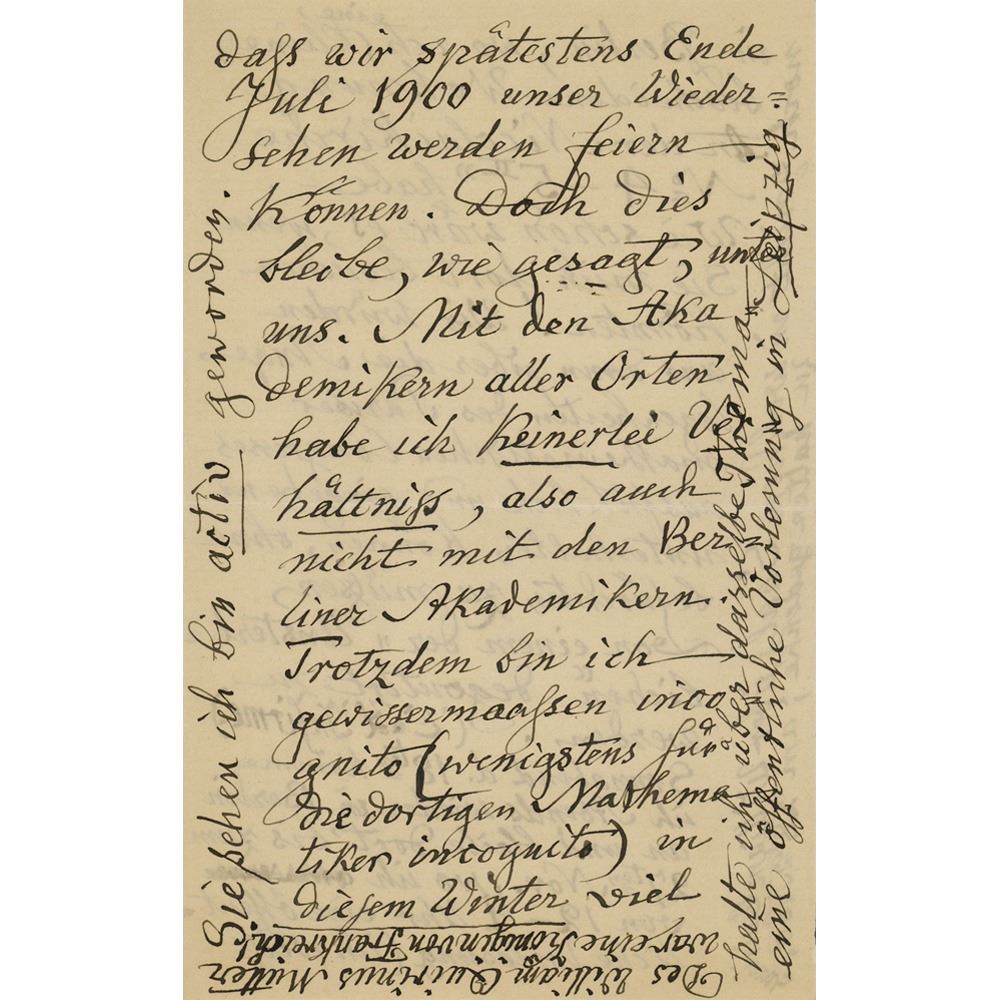 daſs wir spätestens Ende
Juli 1900 unser Wieder=
sehen werden feiern
können. Doch dies
bleibe, wie gesagt, unter
uns. Mit den Aka
demikern aller Orten
habe ich keinerlei Ver
hältniſs, also auch
nicht mit den Ber=
liner Akademikern.
Trotzdem bin ich
gewissermaaſsen inco
gnito (wenigstens für
die dortigen Mathema
tiker incognito) in
diesem Winter viel
hatte ich über dasselbe Thema
eine öffentliche Vorlesung in Leipzig
Sie sehen ich bin activ geworden.
Des William Quirinus Mutter
war eine Königin von Frankreich!